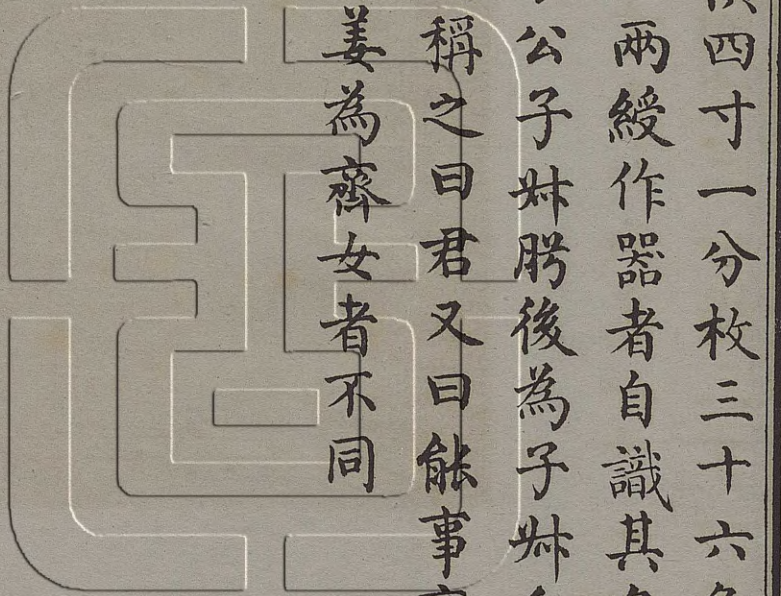 四寸一分枚三十六
兩綬作器者自識其
公子㛮䏿後為子㛮
稱之曰君又曰能事
姜為齊女者不同